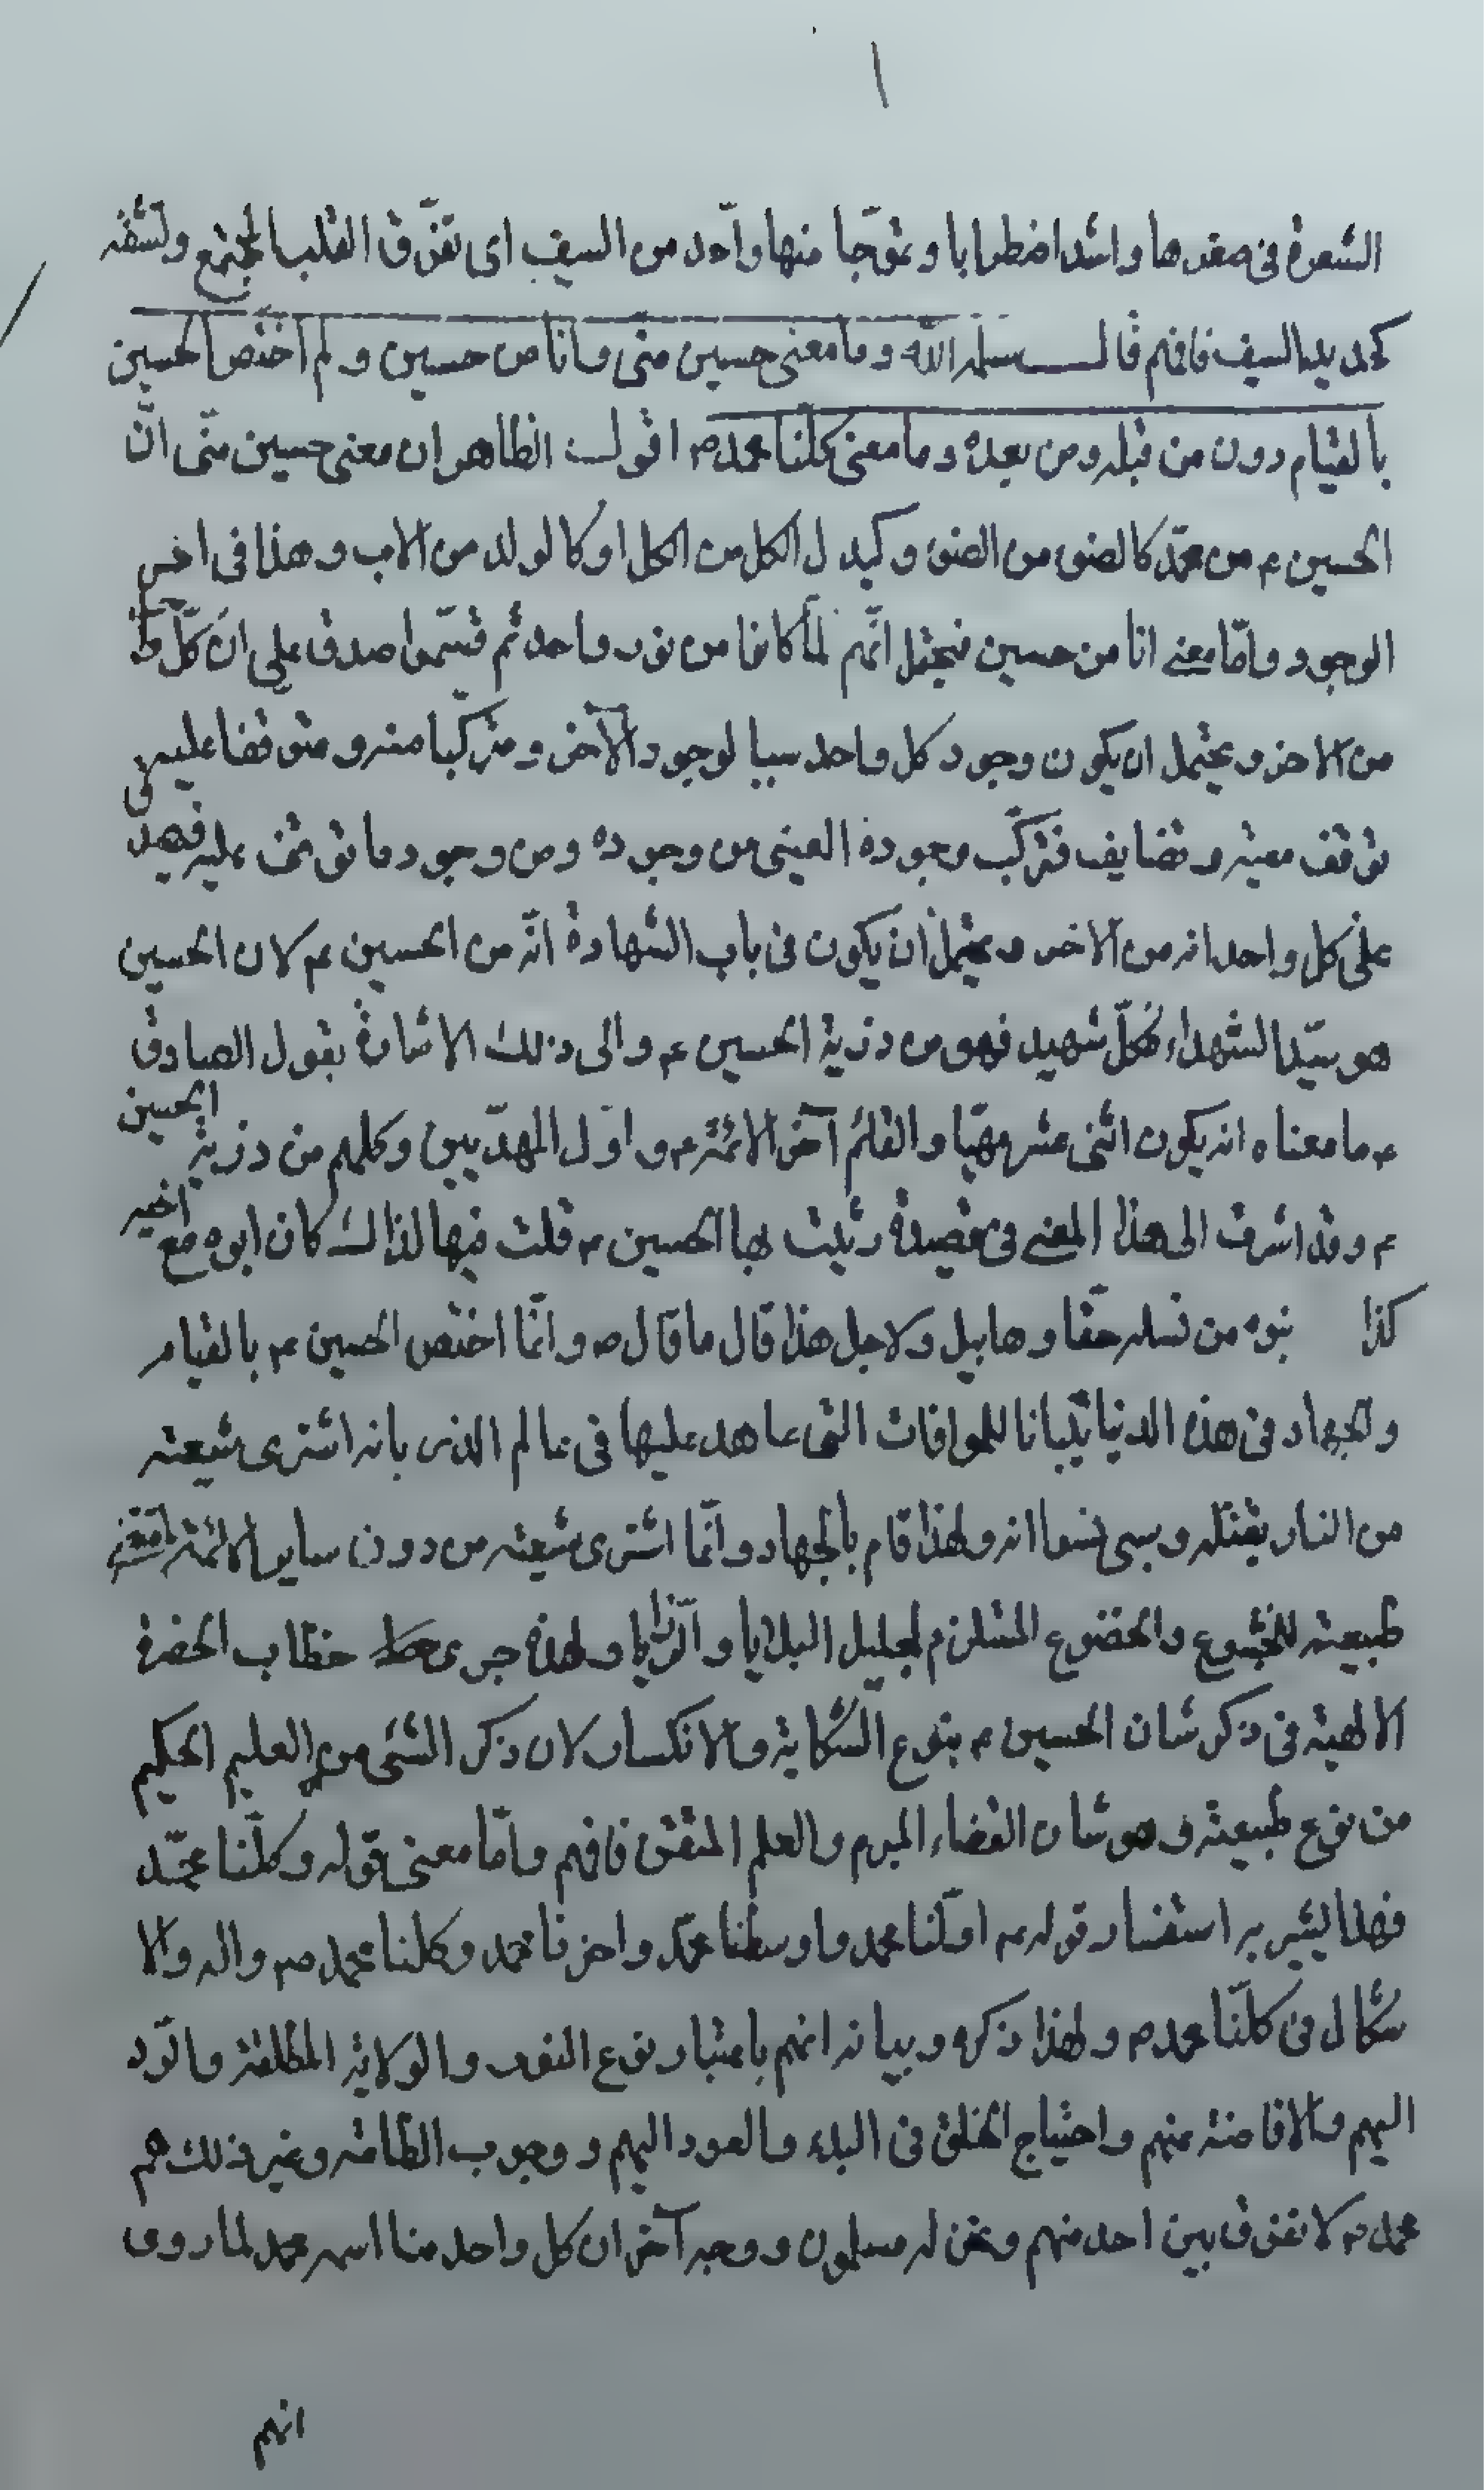 ١
الشعرة فى مقدها واشد اضطرابا وتموّجا منها واحد من السيف اى تفرّق القلب المجتمع ولتشقه
كحديد السيف فافهم قال سلمه الله وما معنى حسين منّى وانا من حسين ولم اختص الحسين
بالقيام دون من قبله ومن بعده وما معنى كلنا محمد ص اقول الظاهر ان معنى حسين منّى انّ
الحسين ع من محمّد كالضوء من الضوء وكبدل الكل من الكل او كالولد من الاب وهذا فى اخر
الوجود وامّا معنى انا من حسين فيحتمل انّهم لمّا كانوا من نور واحد ثم قسّموا صدق على انّ كلّ
من الاخر ويحتمل ان يكون وجود كل واحد سببا لوجود الآخر ومتركّبا منه ومتوقفا عليه
توقف معيّة وتضايف فتركّب وجوده العينى من وجوده ومن وجود ما توقف عليه فيصدق
على كل واحد انه من الآخر ويحتمل ان يكون فى باب الشهادة انّه من الحسين ع لان الحسين
هو سيّد الشهداء فكلّ شهيد فهو من ذرية الحسين ع والى ذلك الاشارة بقول الصادق
ع ما معناه انه يكون اثنى عشر مهديّا والقائم آخر الائمّة ع واوّل المهدّيين وكلهم من ذرية الحسين
ع وقد اشرت الى هذا المعنى فى قصيدة رثيت بها الحسين ع قلت فيها لذالك كان ابوه مع اخير
كذا بنوه من نسله حقّا وهابيل ولاجل هذا قال ما قال ص وانّما اختص الحسين ع بالقيام
والجهاد فى هذه الدنيا للموافات التى عاهد عليها فى عالم الذر بانه اشترى شيعته
من النار بقتله وسبى نسوانه ولهذا قام بالجهاد وانّما اشترى شيعته من دون ساير الائمّة
طبيعته للخشوع والخضوع المستلزم لجليل البلايا والرزايا ولهذا جرى خطاب الحضرة
الالهية فى ذكر شان الحسين ع بنوع الشكاية والانكسار لان ذكر الشئ من العليم الحكيم
من نوع طبيعته وهو شان القضاء المبرم والعلم المتقن فافهم وامّا معنى قوله وكلّنا محمّد
فهذا ليشير به استفسار قوله ع اوّلنا محمد واوسطنا محمّد واخرنا محمد وكلنا محمد ص واله والا
شكال فى كلّنا محمد ص ولهذا ذكره وبيانه انهم باعتبار نوع النور والولاية المطلقة والرّد
اليهم والافاضة عنهم واحتياج الخلق فى البدء والعود اليهم ووجوب الطاعة وغير ذلك هم
محمد ص لا نفرق بين احد منهم ونحن له مسلمون ووجه آخر ان كل واحد منا اسمه محمد لما روى
انهم